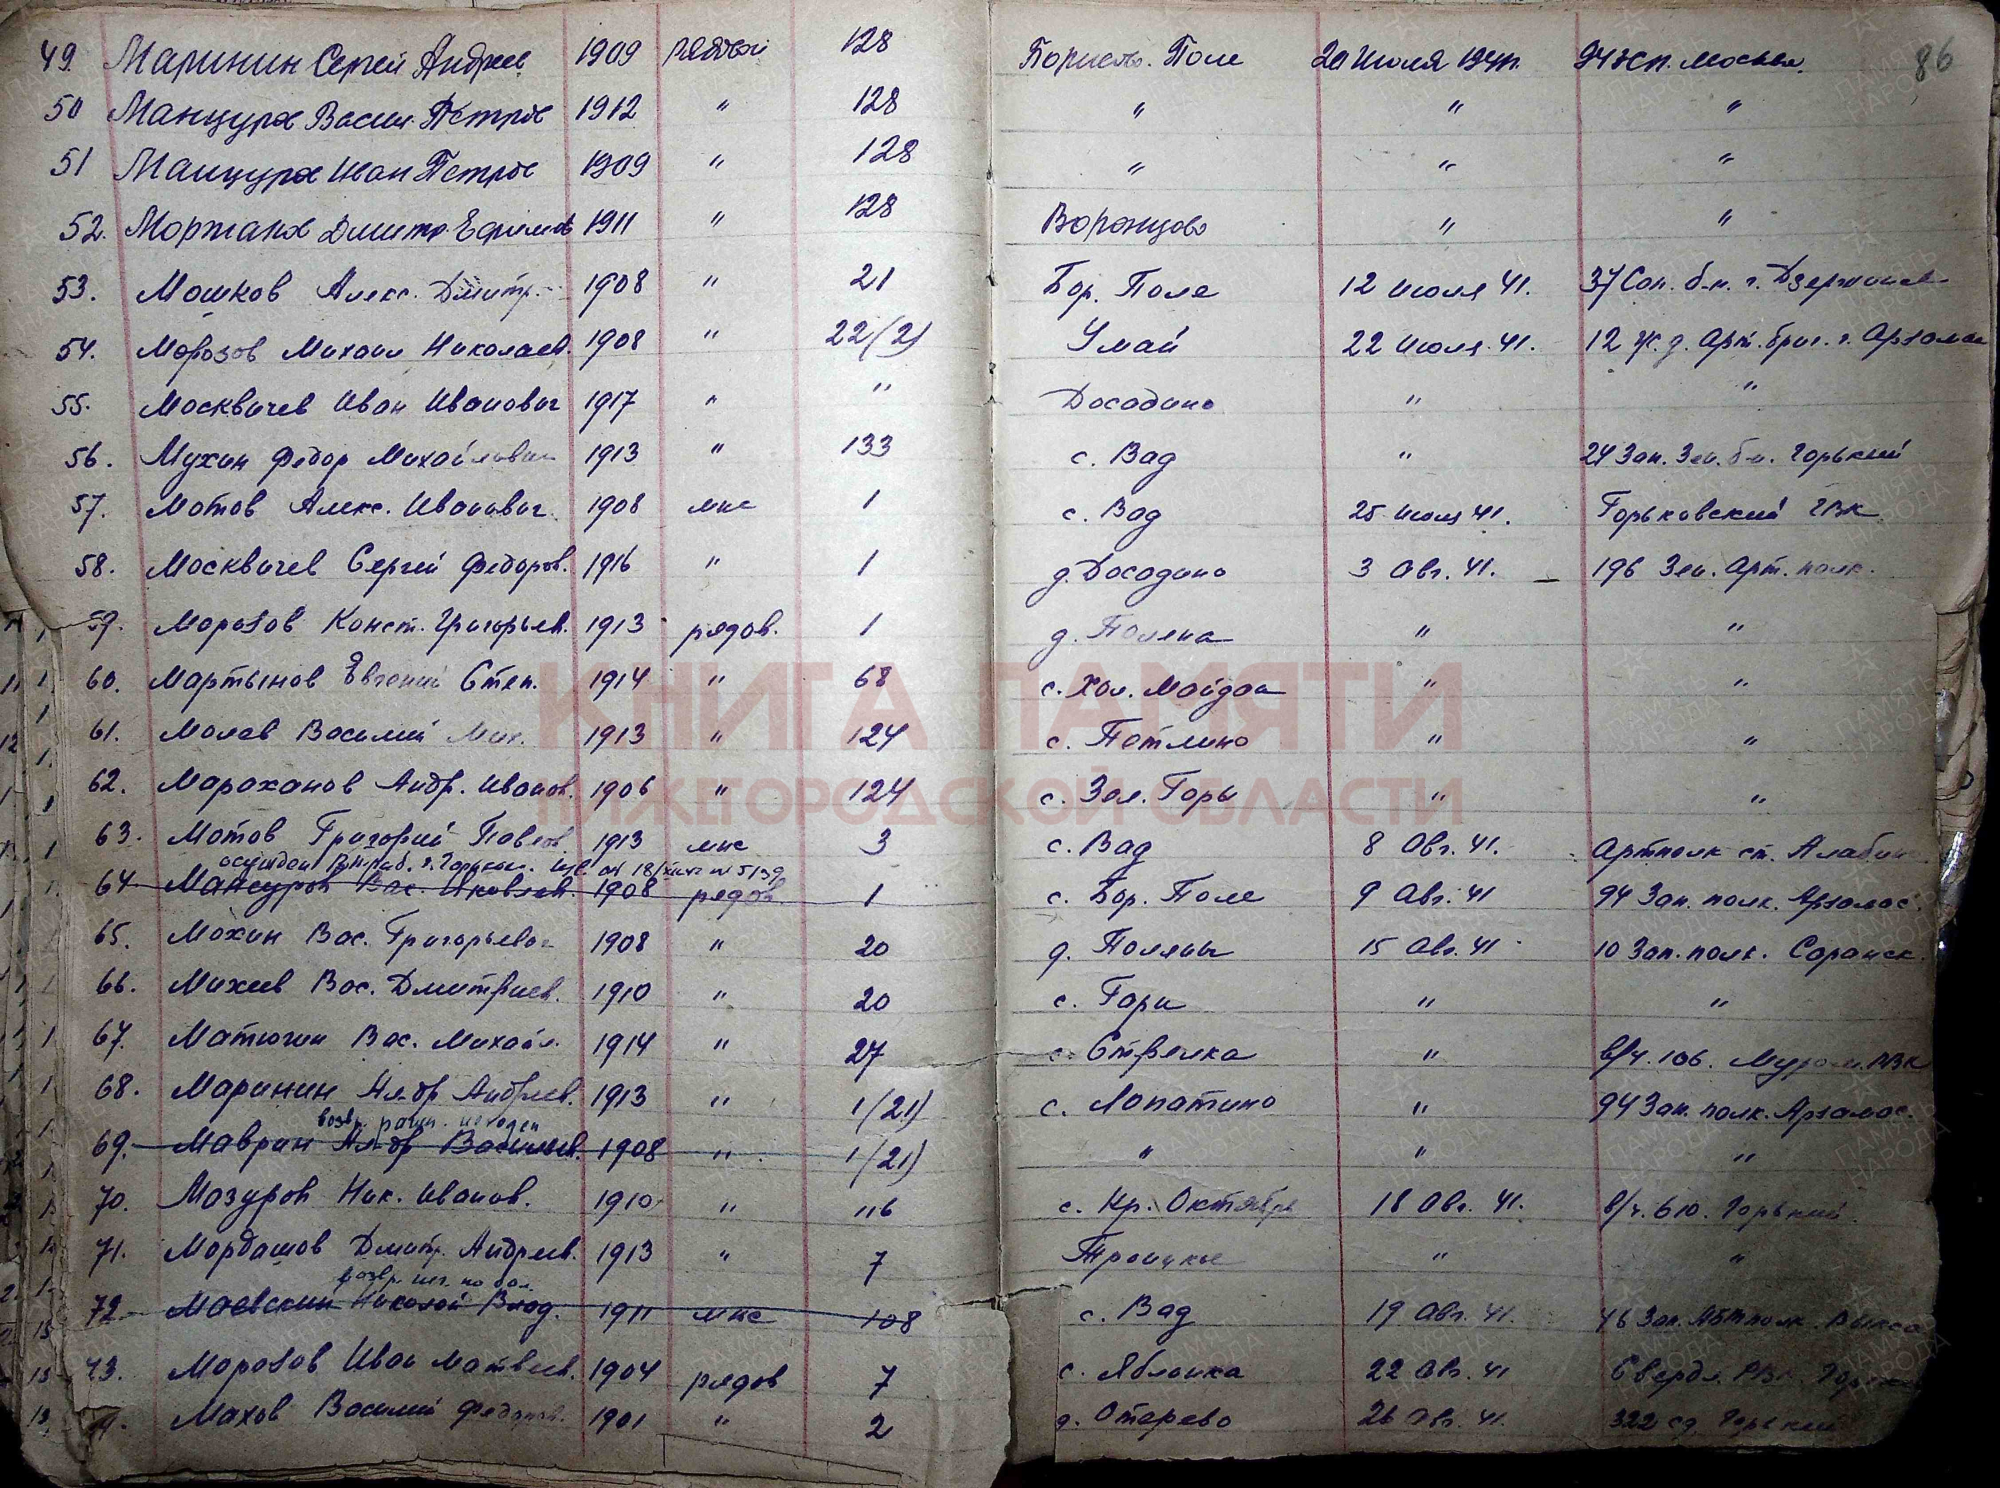 86
49. Маринин Сергей Андреев 1909 рядовой 128 Борисово. Поле 20 июля 1941г. 94 зсп. Москва.
50 Манцуров Васил. Петров 1912 " 128 " " "
51 Манцуров Иван Петров 1909 " 128 " " "
52. Моржаков Дмитр. Ефимов 1911 " 128 Воронцово " "
53. Мошков Алекс. Дмитр. 1908 " 21 Бор. Поле 12 июля 41. 37 Сап. б-н. г. Дзержинск
54. Морозов Михаил Николаев. 1908 " 22/2) Умай 22 июля 41. 12 ж.д. Арт. бриг. г. Арзамас
55. Москвичев Иван Иванович 1917 " " Досадино " "
56. Мухин Федор Михайлович 1913 " 133 с. Вад " 24 Зап. Зен. б-н. Горький
57. Мотов Алекс. Иванович. 1908 мнс 1 с. Вад 25 июля 41. Горьковский ГВК
58. Москвичев Сергей Федоров. 1916 " 1 д. Досадино 3 Авг. 41. 196 Зен. Арт. полк.
59. Морозов Конст. Григорьев. 1913 рядов. 1 д. Поляна " "
60. Мартынов Евгений Степ. 1914 " 68 с. Хол. Майдан " "
61. Малев Василий Мих. 1913 " 124 с. Петлино " "
62. Мараханов Андр. Иванов. 1906 " 124 с. Зел. Горы " "
63. Мотов Григорий Павлов. 1913 мнс 3 с. Вад 8 Авг. 41. Артполк ст. Алабино
осужден г. Горьк.
64. Мансуров Вас. Яковлев. 1908 рядов. 1 с. Бор. Поле 9 Авг. 41 94 Зап. полк. Арзамас.
65. Мохин Вас. Григорьевич 1908 " 20 д. Поляны 15 Авг. 41. 10 Зап. полк. Саранск.
66. Михеев Вас. Дмитриев. 1910 " 20 с. Гари " "
67. Матюгин Вас. Михайл. 1914 " 27 с. Стрелка " в/ч. 106. Муром. РВК
68. Маринин Ал-др Андреев. 1913 " 1/21) с. Лопатино " 94 Зап. полк. Арзамас.
возвр.
69. Маврин Ал-др Васильев. 1908 " 1/21) " " "
70. Мазуров Ник. Иванов. 1910 " 116 с. Кр. Октябрь 18 Авг. 41. в/ч. 610. Горький
71. Мордашов Дмитр. Андреев. 1913 " 7 Троицкое " "
возвр. по бол.
72. Маевский Николай Влад. 1911 мнс 108 с. Вад 19 Авг. 41. 46 Зап. Автполк Выкса
73. Морозов Иван Матвеев. 1904 рядов 7 с. Яблонка 22 Авг. 41 Свердл. РВК Горький
Махов Василий Федоров. 1901 " 2 д. Отарево 26 Авг. 41. 322 сд Горький
КНИГА ПАМЯТИ
НИЖЕГОРОДСКОЙ ОБЛАСТИ